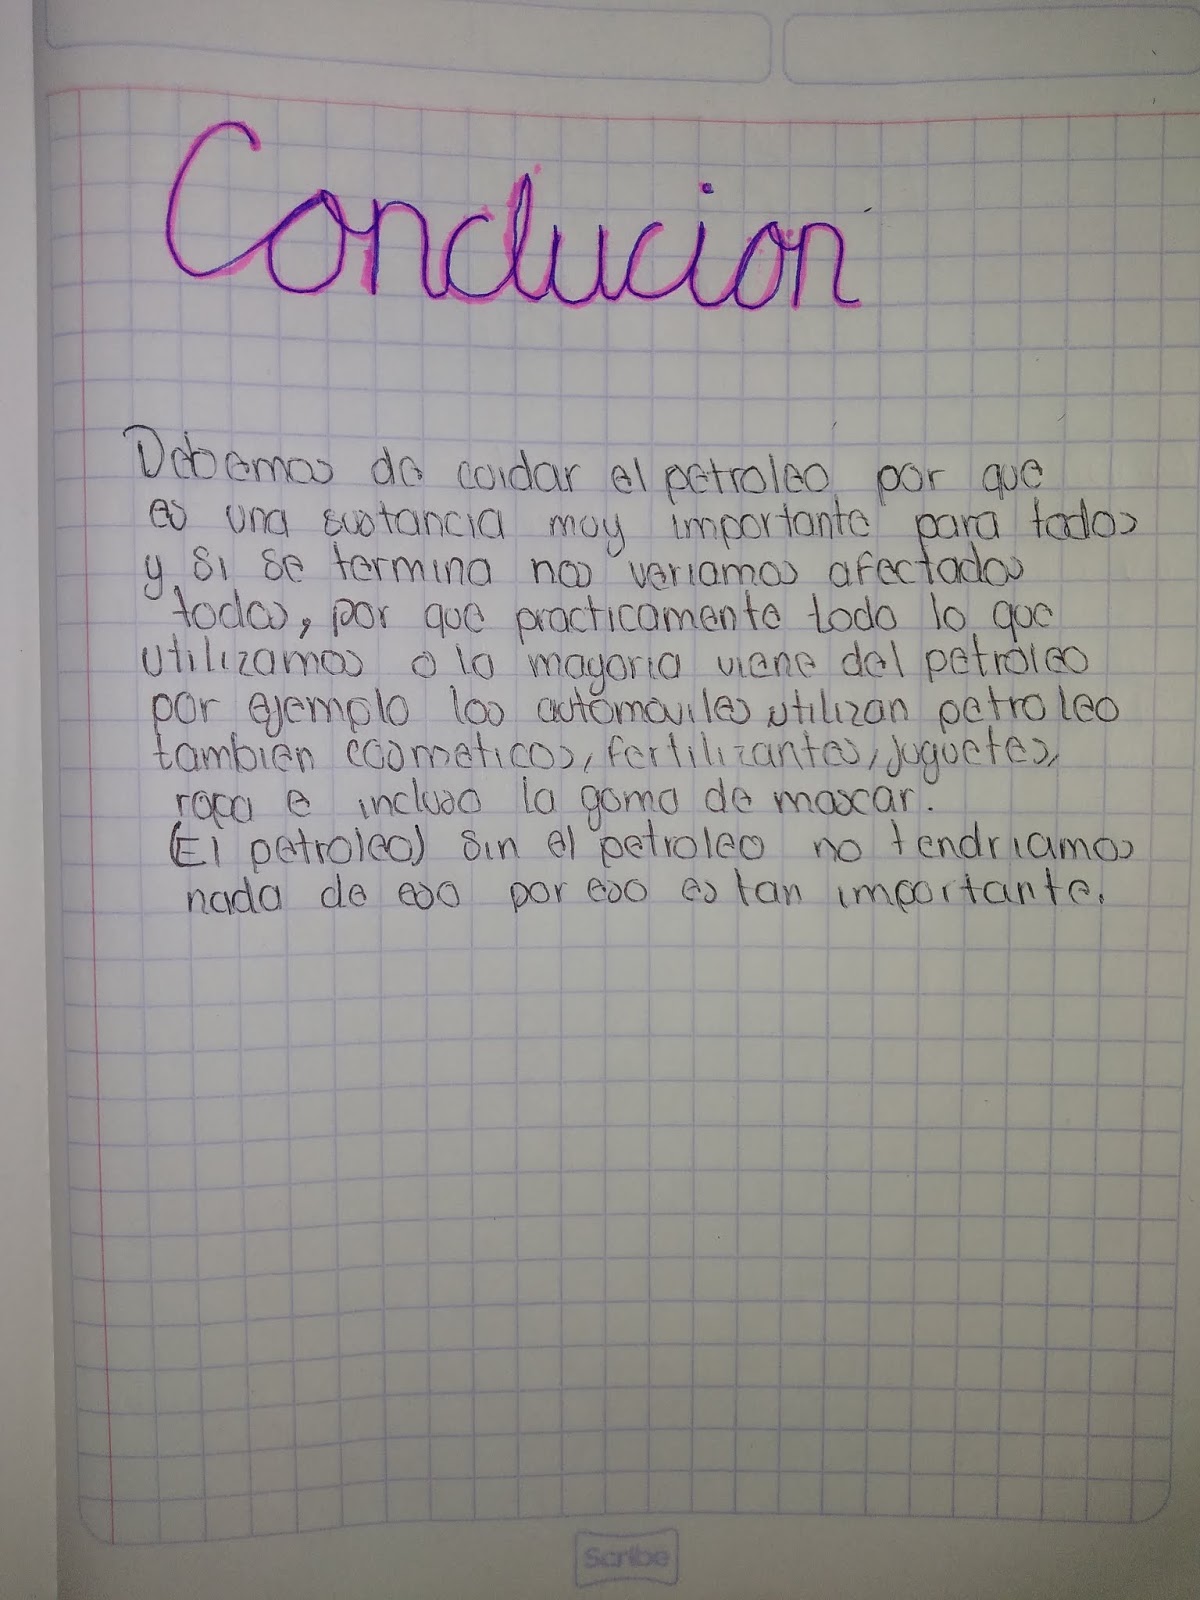 Conclucion
Debemos de cuidar el petroleo, por que
es una sustancia muy importante para todos
y si se termina nos veriamos afectados
todos, por que practicamente todo lo que
utilizamos o la mayoria viene del petroleo
por ejemplo los automoviles utilizan petroleo
tambien cosmeticos, fertilizantes, juguetes,
ropa e incluso la goma de mascar.
(El petroleo) Sin el petroleo no tendriamos
nada de eso por eso es tan importante.
Scribe